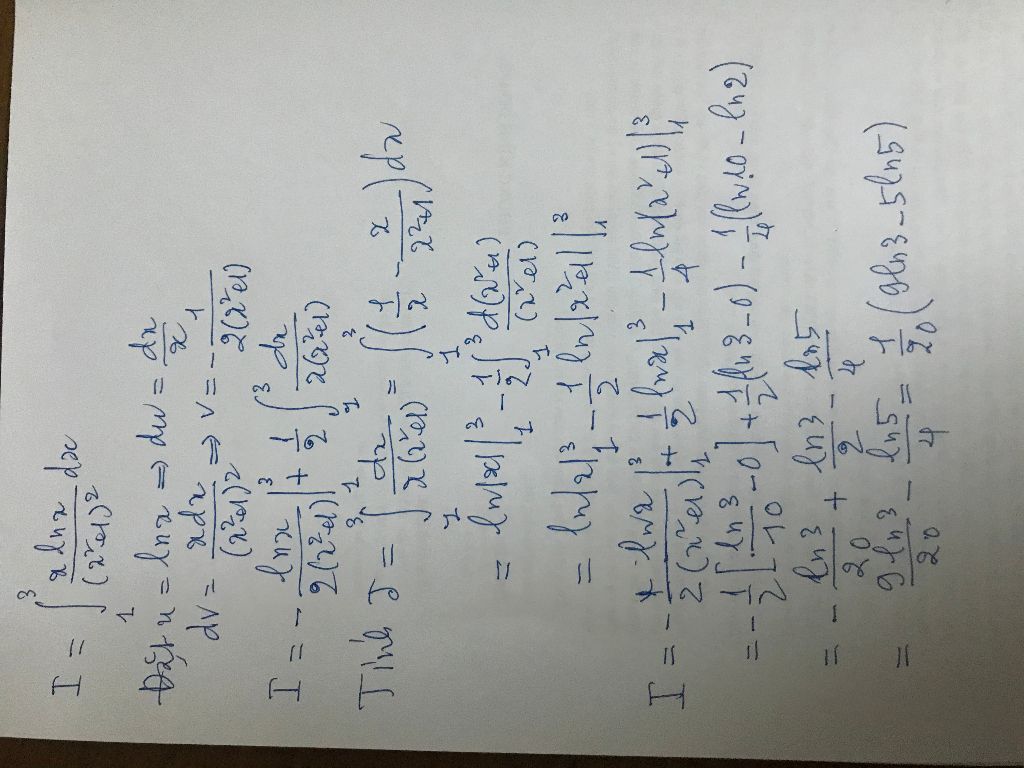 I = ∫₁³ x ln x / (x²+1)² dx
Đặt u = ln x ⇒ du = dx/x
dv = xdx/(x²+1)² ⇒ v = - 1/2(x²+1)
I = - ln x/2(x²+1) |₁³ + 1/2 ∫₁³ dx/x(x²+1)
Tính J = ∫₁³ dx/x(x²+1) = ∫₁³ (1/x - x/x²+1) dx
= ln|x| |₁³ - 1/2 ∫₁³ d(x²+1)/(x²+1)
= ln|x| |₁³ - 1/2 ln|x²+1| |₁³
I = - ln x/2(x²+1) |₁³ + 1/2 ln x |₁³ - 1/4 ln(x²+1) |₁³
= - 1/2 [ln 3/10 - 0] + 1/2 (ln 3 - 0) - 1/4 (ln 10 - ln 2)
= - ln 3/20 + ln 3/2 - ln 5/4
= 9 ln 3/20 - ln 5/4 = 1/20 (9 ln 3 - 5 ln 5)